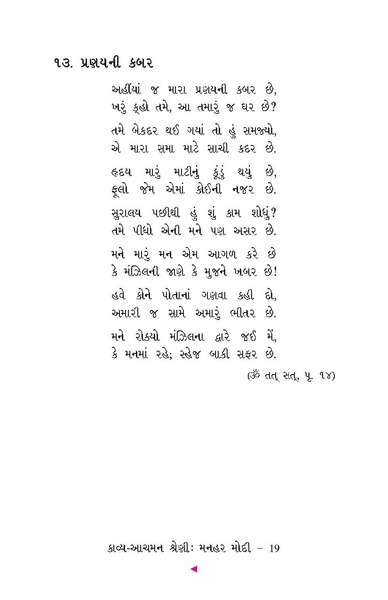 ૧૩. પ્રણયની કબર
અહીંયાં જ મારા પ્રણયની કબર છે,
ખરું ક્‌હો તમે, આ તમારું જ ઘર છે?
તમે બેકદર થઈ ગયાં તો હું સમજ્યો,
એ મારા સમા માટે સાચી કદર છે.
હૃદય મારું માટીનું કૂંડું થયું છે,
ફૂલો જેમ એમાં કોઈની નજર છે.
સુરાલય પછીથી હું શું કામ શોધું?
તમે પીધો એની મને પણ અસર છે.
મને મારું મન એમ આગળ કરે છે
કે મંઝિલની જાણે કે મુજને ખબર છે!
હવે કોને પોતાનાં ગણવા કહી દો,
અમારી જ સામે અમારું ભીતર છે.
મને રોક્યો મંઝિલના દ્વારે જઈ મેં,
કે મનમાં રહે; સ્હેજ બાકી સફર છે.
(ૐ તત્ સત્, પૃ. ૧૪)
કાવ્ય-આચમન શ્રેણીઃ મનહર મોદી – 19